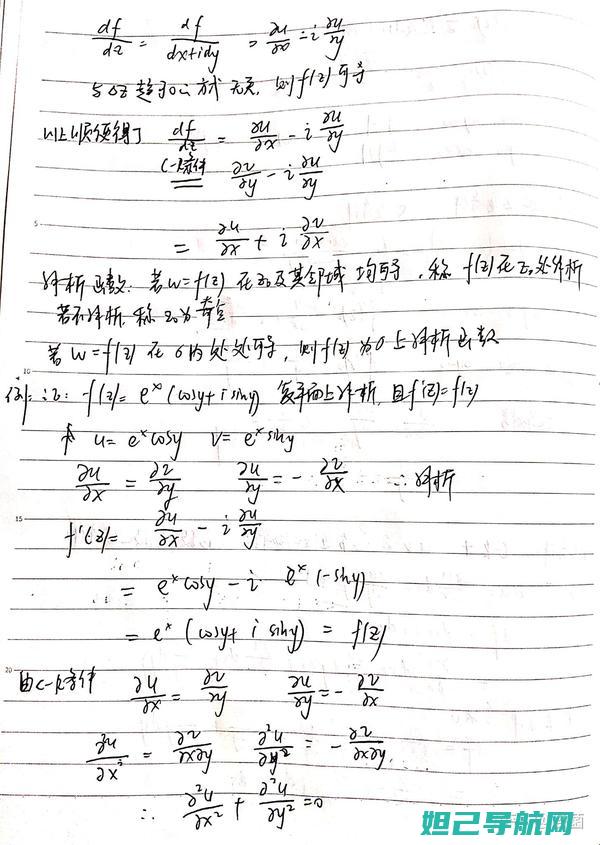 df/dz = df/(dx+idy) = ∂u/∂x - i ∂u/∂y
与Δz趋于0的方式无关, 则f(z)可导
以上顺便得了 df/dz = ∂u/∂x - i ∂u/∂y
C-R条件 ∂v/∂y - i ∂u/∂y
5
= ∂u/∂x + i ∂v/∂x
解析函数: 若w=f(z) 在z₀及其邻域 均可导, 称 f(z)在z₀处解析
若不解析, 称z₀为奇点
若 w=f(z) 在σ内处处可导, 则f(z)为σ上解析函数
10
例: 证: f(z)= eˣ(cosy+isiny) 复平面上解析, 且f'(z)=f(z)
u= eˣcosy v= eˣsiny
∂u/∂x = ∂v/∂y ∂u/∂y = - ∂v/∂x ∴解析
15
f'(z)= ∂u/∂x - i ∂u/∂y
= eˣcosy - i eˣ(-siny)
= eˣ (cosy+ i siny) = f(z)
20
由C-R条件 ∂u/∂x = ∂v/∂y ∂u/∂y = - ∂v/∂x
∂²u/∂x² = ∂v/∂x∂y ∂²u/∂y² = - ∂v/∂x∂y.
∴ ∂²u/∂x² + ∂²u/∂y² =0
妲己导航网